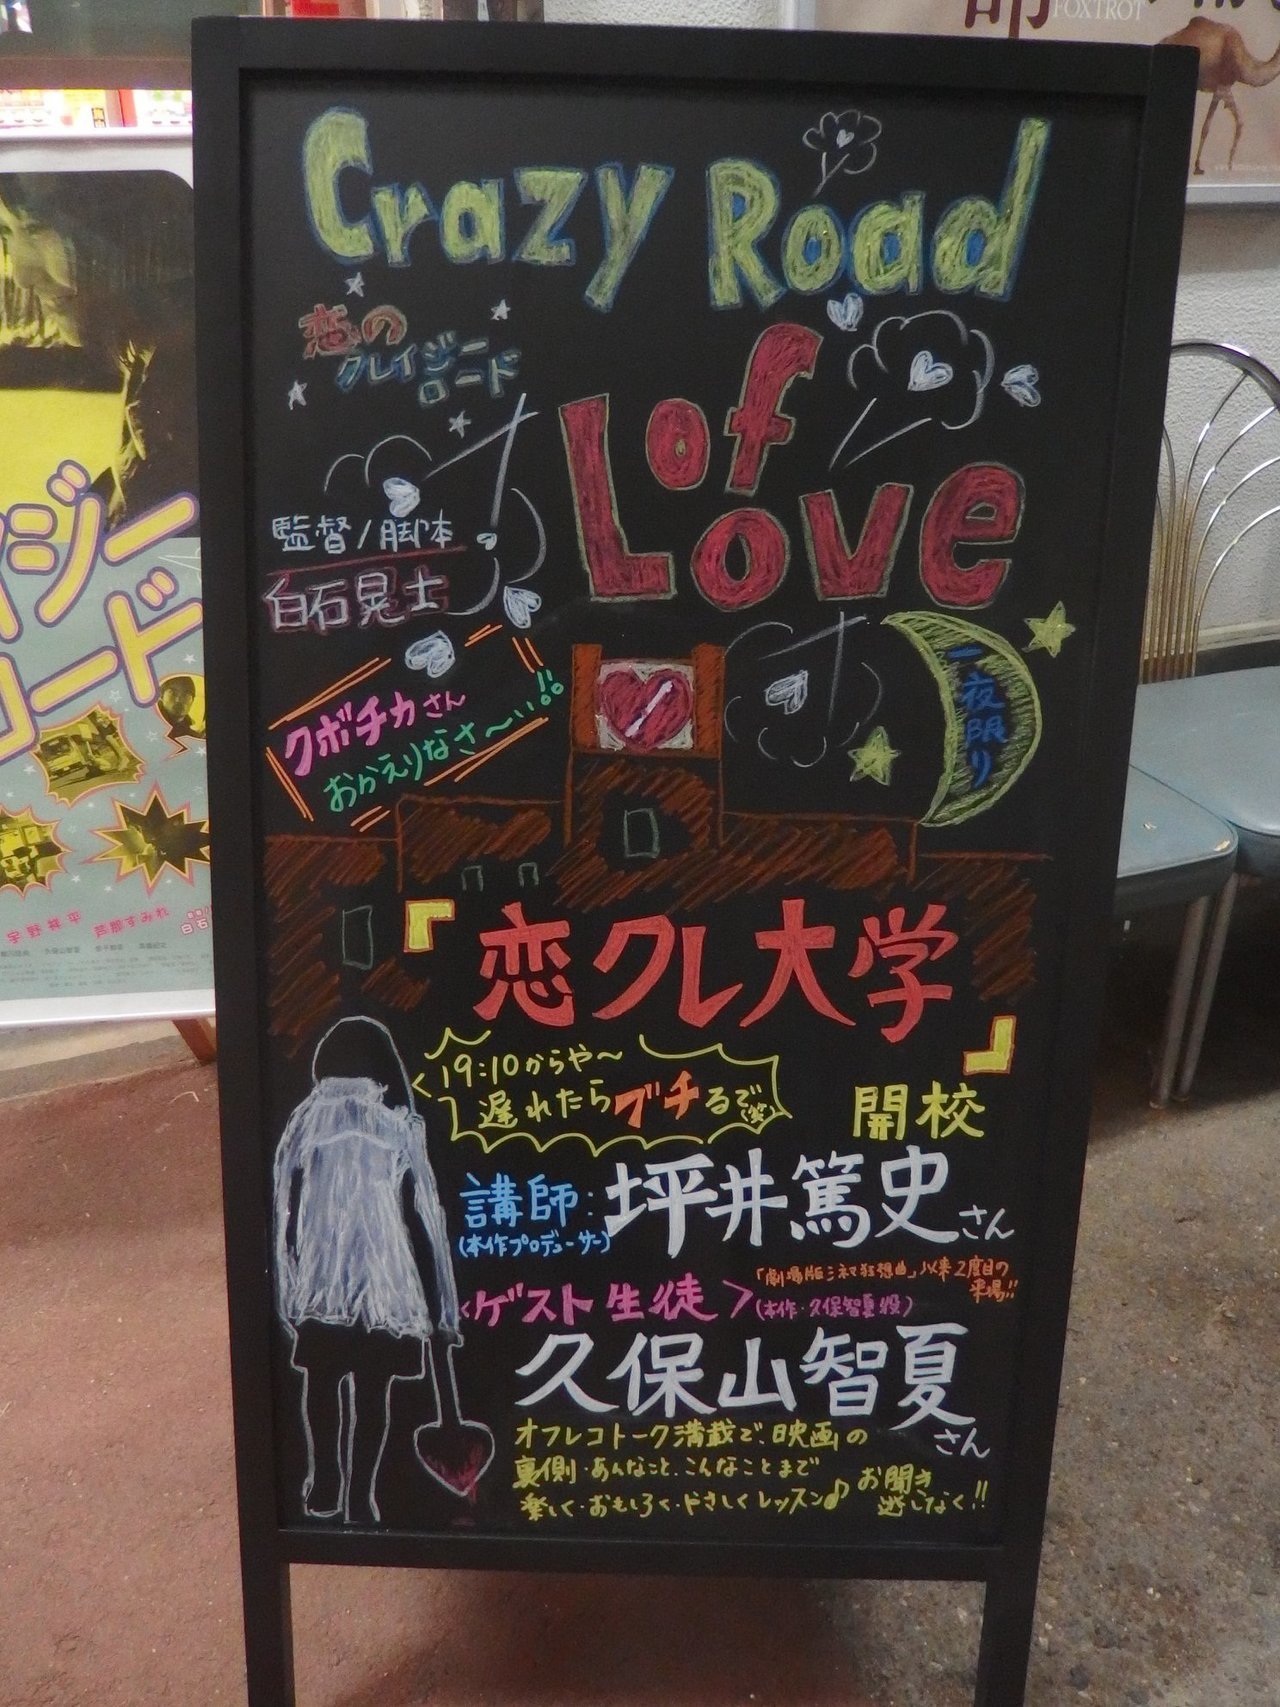 FOXTROT
Crazy Road
of
Love
恋の
クレイジー
ロード
監督/脚本
白石晃士
クボチカさん
おかえりなさ〜い!!
一夜限り
『恋クレ大学』
19:10からや〜
遅れたらブチるで(笑)
開校
講師:坪井篤史さん
(本作プロデューサー)
「劇場版シネマ狂想曲」以来2度目の
来場!!
<ゲスト生徒>
(本作・久保智夏役)
久保山智夏さん
オフレコトーク満載で、映画の
裏側・あんなこと、こんなことまで
楽しく・おもしろく・やさしくレッスン♪
お聞き
逃しなく!!
イジー
ロード
宇野祥平
芦那すみれ
白石